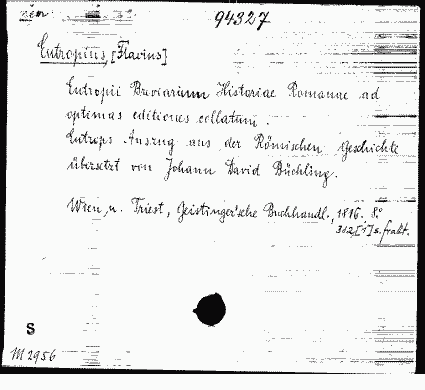 94327
Eutropius, [Flavius]
Eutropii Breviarium Historiae Romanae ad
optimas editiones collatum.
Eutrops Auszug aus der Römischen Geschichte
übersetzt von Johann David Büchling.
Wien u. Triest, Geistinger'sche Buchhandl., 1816. 8°
312 S. frakt.
S
M 2956